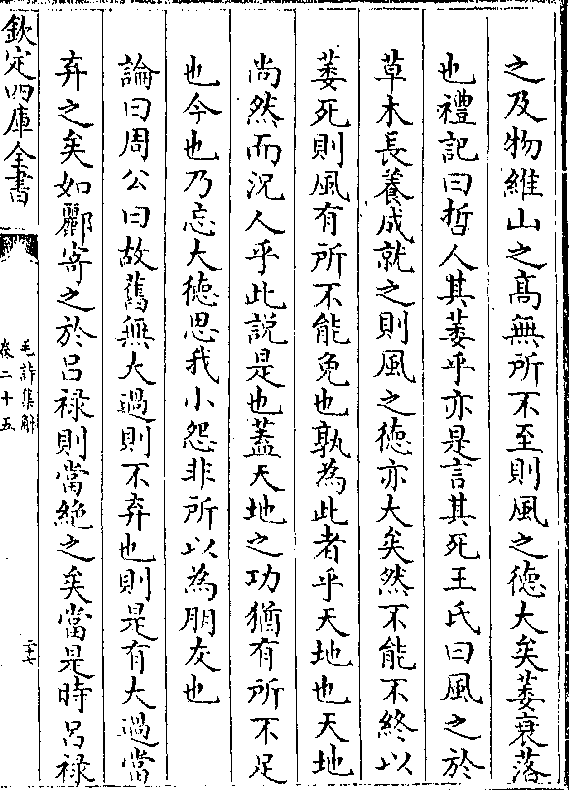 之及物維山之高無所不至則風之徳大矣萎衰落
也禮記曰哲人其萎乎亦是言其死王氏曰風之於
草木長養成就之則風之徳亦大矣然不能不終以
萎死則風有所不能免也孰為此者乎天地也天地
尚然而況人乎此説是也蓋天地之功猶有所不足
也今也乃忘大徳思我小怨非所以為朋友也
論曰周公曰故舊無大過則不弃也則是有大過當
弃之矣如酈寄之於吕禄則當絶之矣當是時吕禄
欽定四庫全書
毛詩集解
卷二十五
二十七